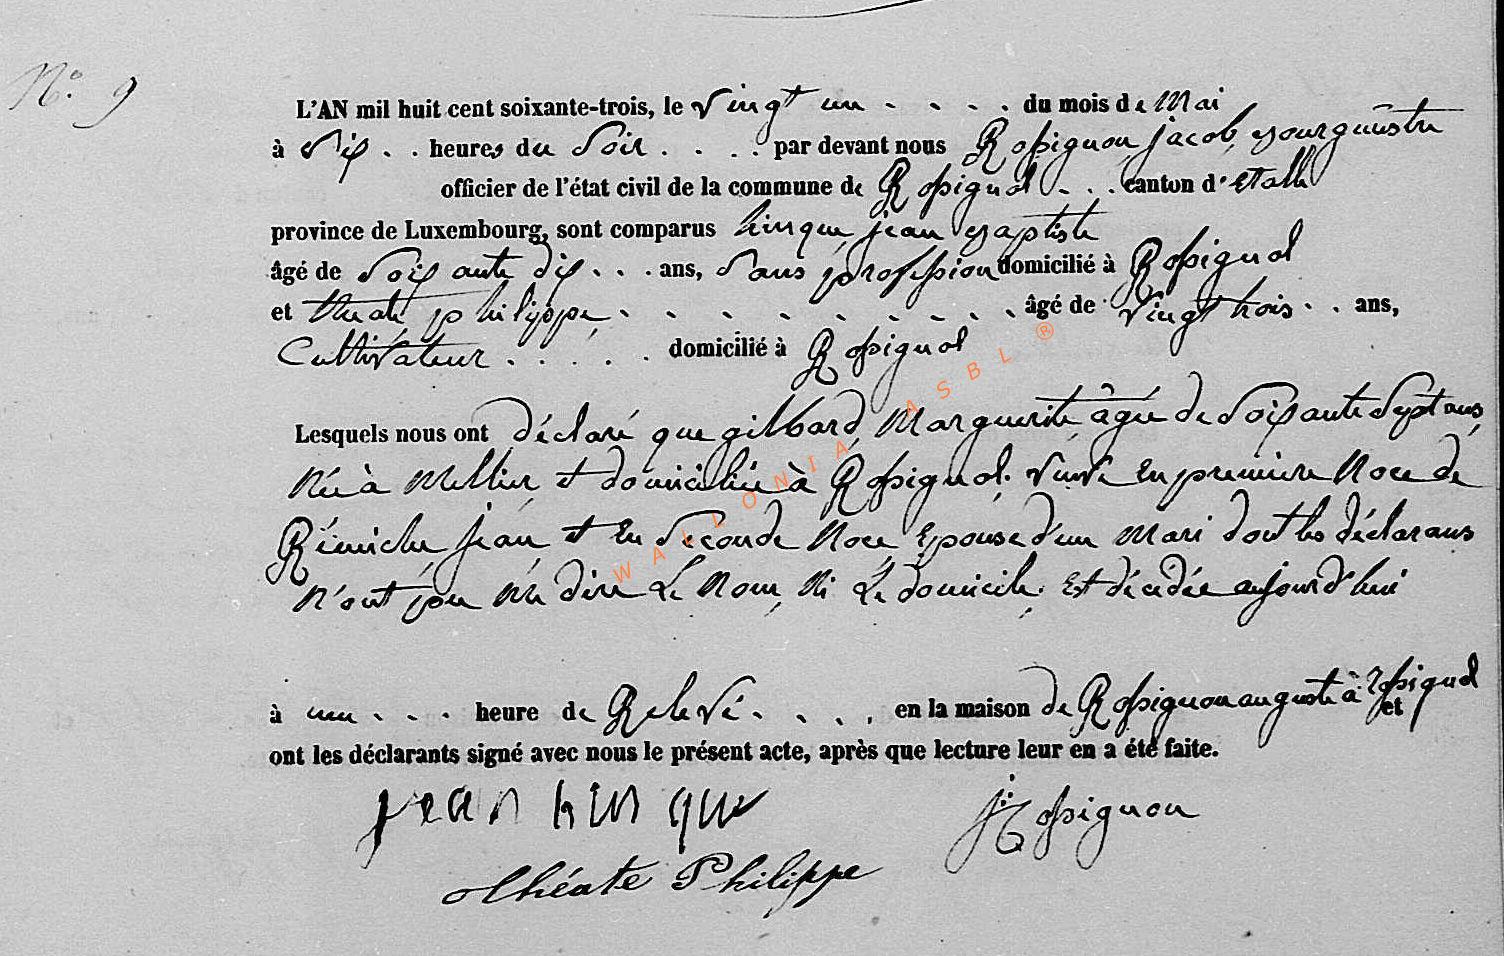 N° 9
L'AN mil huit cent soixante-trois, le vingt un . . . . du mois de Mai
à Six . . heures du Soir . . . . par devant nous Rossignon, jacob, bourguestre
officier de l'état civil de la commune de Rossignol . . . canton d' Etalle
province de Luxembourg, sont comparus hinque, jean baptiste
âgé de Soixante dix . . . ans, Sans profession domicilié à Rossignol
et theate, philippe, . . . . . . . . . . âgé de Vingt trois . . ans,
Cultivateur . . . . . domicilié à Rossignol
Lesquels nous ont déclaré que gilbard, Marguerite, âgée de Soixante Sept ans,
Née à Mellier, et domiciliée à Rossignol. Veuve En premiere Noce de
Rémiche jean, et En Séconde Noce Epouse d'un Mari dont les déclarans
N'ont pu Me dire Le Nom, Ni Lé domicile; Est décédée aujourd'hui
à une . . . heure de Relevé . . . . en la maison de Rossignon auguste à Rossignol et
ont les déclarants signé avec nous le présent acte, après que lecture leur en a été faite.
jean hinque
J. Rossignon
théate Philippe
WALLONIA ASBL ®